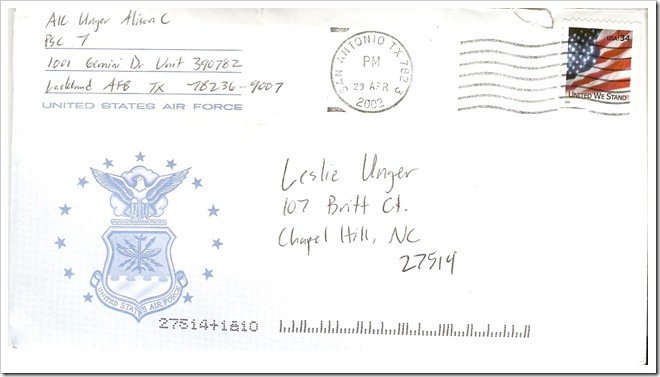 A1C Unger Alison C
PSC 7
1001 Gemini Dr Unit 390782
Lackland AFB TX 78236-9007
UNITED STATES AIR FORCE
SAN ANTONIO TX 782 3
PM
29 APR
2002
USA 34
UNITED WE STAND
Leslie Unger
107 Britt Ct.
Chapel Hill, NC
27514
UNITED STATES AIR FORCE
27514+1810